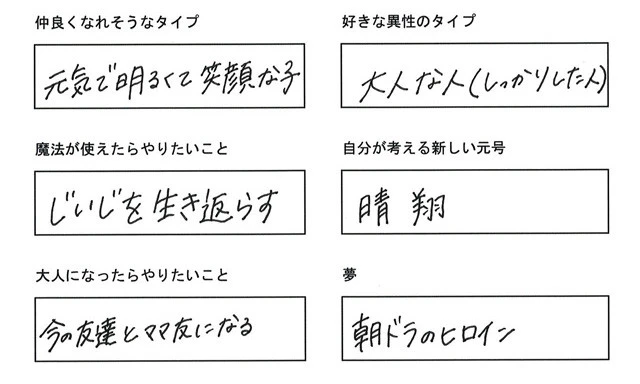 仲良くなれそうなタイプ
元気で明るくて笑顔な子
好きな異性のタイプ
大人な人(しっかりした人)
魔法が使えたらやりたいこと
じいじを生き返らす
自分が考える新しい元号
晴翔
大人になったらやりたいこと
今の友達とママ友になる
夢
朝ドラのヒロイン